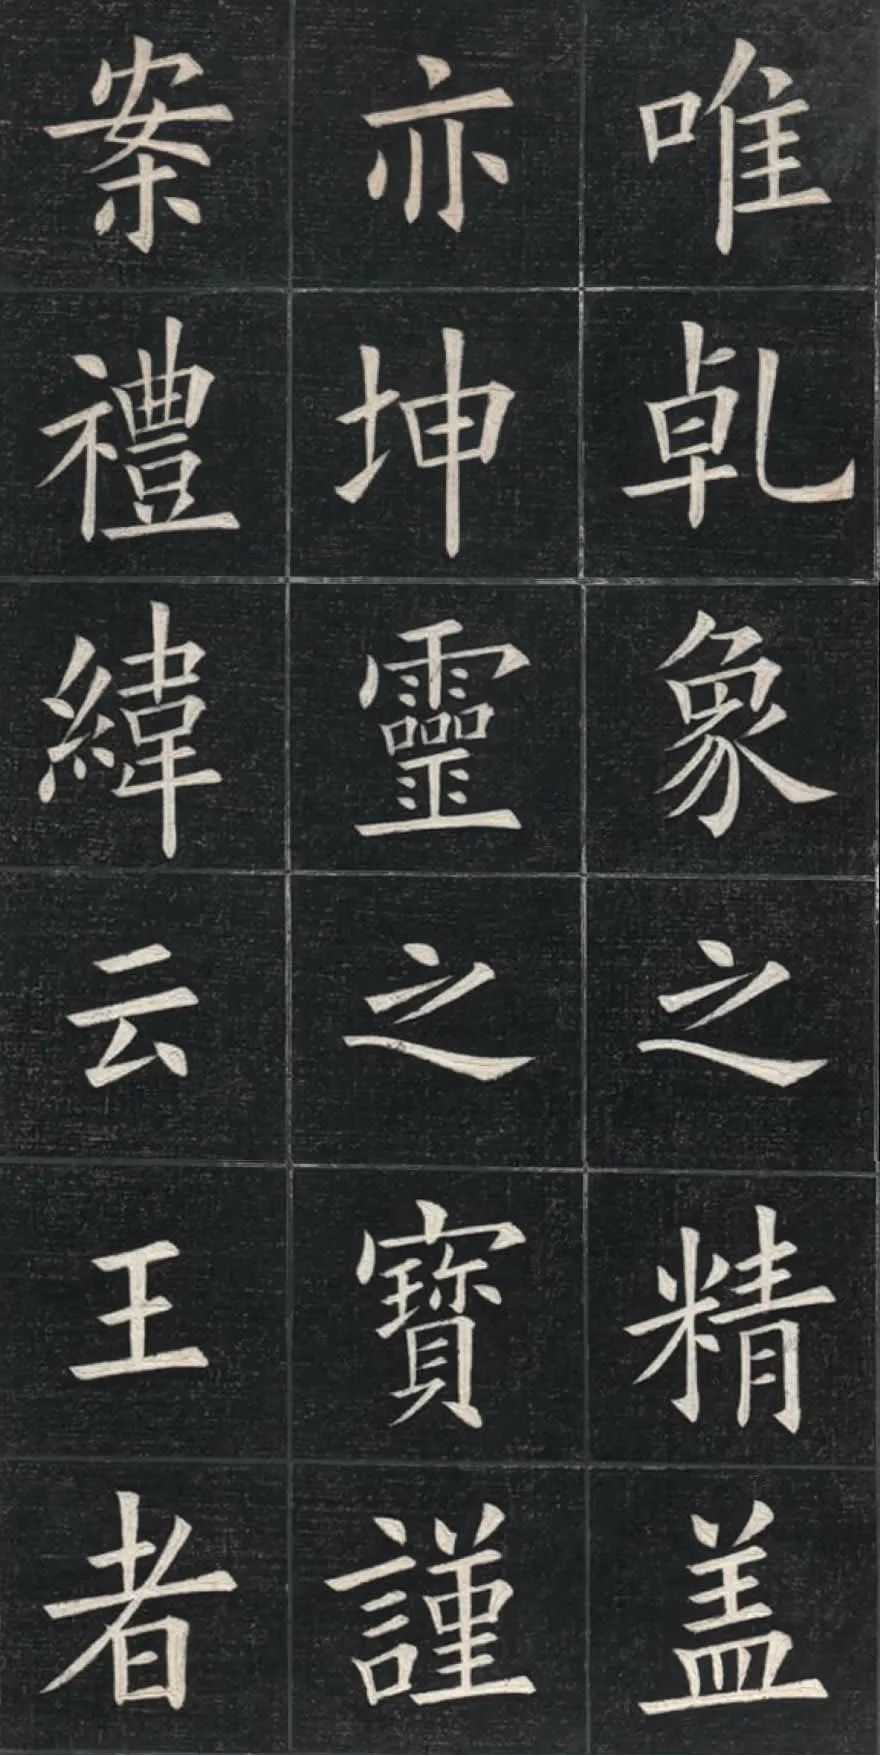 唯乹象之精蓋
亦坤靈之寶謹
案禮緯云王者